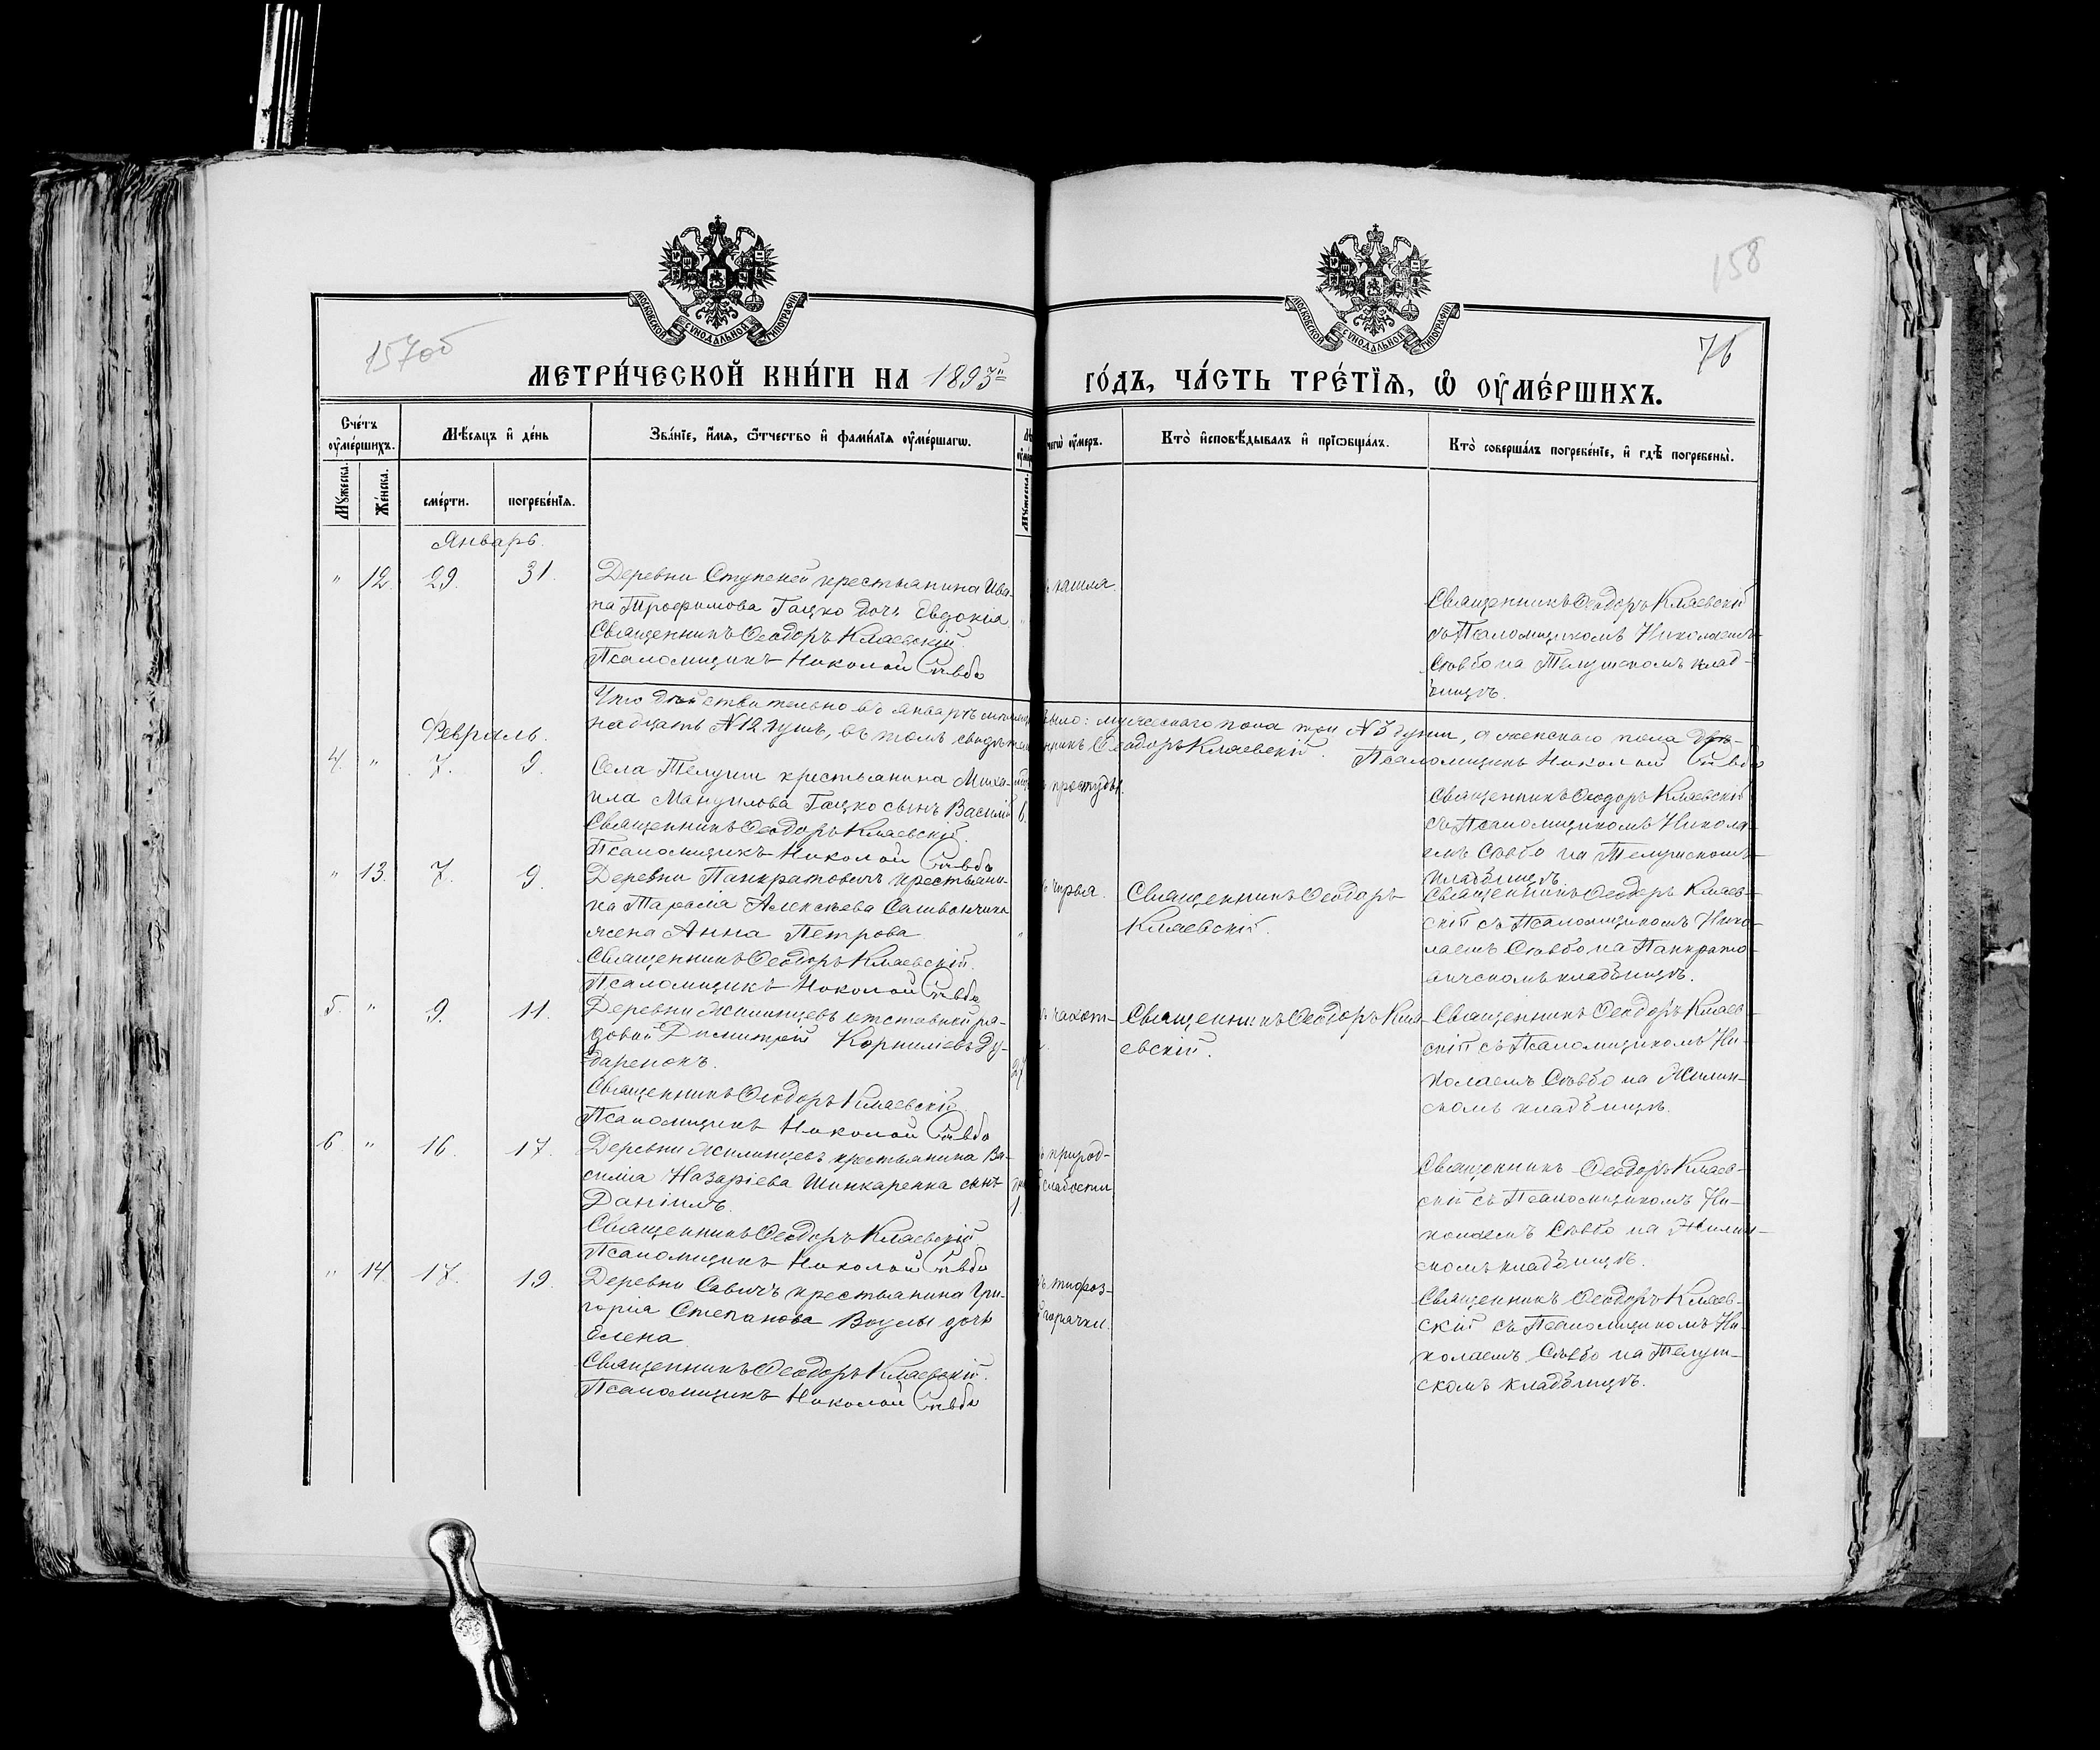 158
157об
76
МОСКОВСКОЙ СѴНОДАЛЬНОЙ ТИПОГРАФІИ
МОСКОВСКОЙ СѴНОДАЛЬНОЙ ТИПОГРАФІИ
МЕТРИ́ЧЕСКОЙ КНИ́ГИ НА 1893й го́дъ, ча́сть тре́тїѧ, ѽ оу҆ме́ршихъ.
Сче́тъ оу҆ме́ршихъ.
Мѣ́сяцъ и҆ де́нь
Зва́нїе, и҆́мѧ, ѻ҆́тчество и҆ фами́лїѧ оу҆ме́ршагѡ.
чегѡ̀ оу҆́меръ.
Кто̀ и҆сповѣ́дывалъ и҆ прїѡбща́лъ.
Кто̀ соверша́лъ погребе́нїе, и҆ гдѣ̀ погребены̀.
Мꙋ́жеска.
Же́нска.
сме́рти.
погребе́нїѧ.
Мꙋ́жеска.
Январь.
" 12. 29. 31.
Деревни Ступеней крестьянина Ива-
на Трофимова Гацко дочь Евдокія
Священникъ Ѳеодоръ Кляевскій
Псаломщикъ Николай Сѣвбо
кашля.
Священникъ Ѳеодоръ Кляевскій
съ Псаломщикомъ Николаемъ
Сѣвбо на Телушскомъ клад-
бищѣ.
Что дѣйствительно въ январѣ мѣсяцѣ было: мужескаго пола три №3 души, а женскаго пола двѣ-
надцать №12 душъ, въ томъ свидѣтел Ѳеодоръ Кляевскій. Псаломщикъ Николай Сѣвбо
Февраль.
4. " 7. 9.
Села Телуши крестьянина Миха-
ила Мануилова Гацко сынъ Василій
Священникъ Ѳеодоръ Кляевскій
Псаломщикъ Николай Сѣвбо
6.
простуды.
Священникъ Ѳеодоръ Кляевскій
съ Псаломщикомъ Никола-
емъ Сѣвбо на Телушскомъ
кладбищѣ.
" 13. 7. 9.
Деревни Панкратовичъ крестьяни-
на Тарасія Алексѣева Самвончика
жена Анна Петрова
Священникъ Ѳеодоръ Кляевскій.
Псаломщикъ Николай Сѣвбо
"
чирья.
Священникъ Ѳеодоръ
Кляевскій.
Священникъ Ѳеодоръ Кляев-
скій съ Псаломщикомъ Нико-
лаемъ Сѣвбо на Панкрато-
вичскомъ кладбищѣ.
5. " 9. 11.
Деревни Жилинцевъ отставной ря-
довой Димитрій Корниліевъ Ду-
даренокъ.
Священникъ Ѳеодоръ Кляевскій
Псаломщикъ Николай Сѣвбо
27
чахот-
Священникъ Ѳеодоръ Кля-
евскій.
Священникъ Ѳеодоръ Кляев-
скій съ Псаломщикомъ Ни-
колаемъ Сѣвбо на Жилин-
скомъ кладбищѣ.
6. " 16. 17.
Деревни Жилинцевъ крестьянина Ва-
силія Назаріева Шинкаренка сынъ
Даніилъ.
Священникъ Ѳеодоръ Кляевскій
Псаломщикъ Николай Сѣвбо
1.
природ-
слабости
Священникъ Ѳеодоръ Кляев-
скій съ Псаломщикомъ Ни-
колаемъ Сѣвбо на Жилин-
скомъ кладбищѣ.
" 14. 17. 19.
Деревни Савичъ крестьянина Гри-
горія Степанова Воулы дочь
Елена
Священникъ Ѳеодоръ Кляевскій.
Псаломщикъ Николай Сѣвбо
тифоз-
горячки.
Священникъ Ѳеодоръ Кляев-
скій съ Псаломщикомъ Ни-
колаемъ Сѣвбо на Телуш-
скомъ кладбищѣ.